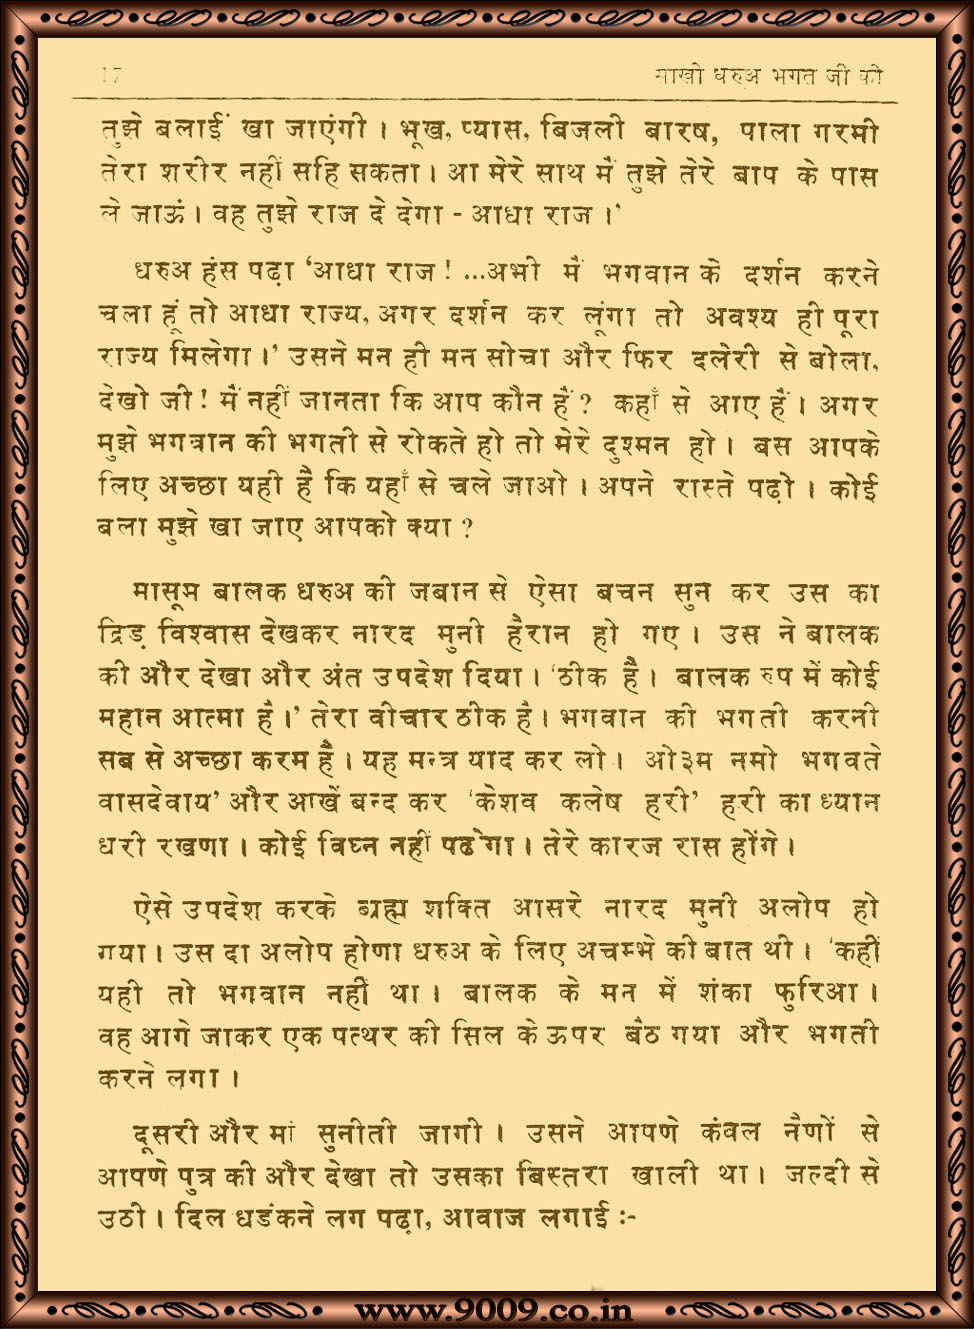 17 साखी धरुअ भगत जी की
तुझे बलाईं खा जाएंगी । भूख, प्यास, बिजली बारष, पाला गरमी
तेरा शरीर नहीं सहि सकता । आ मेरे साथ मैं तुझे तेरे बाप के पास
ले जाऊं । वह तुझे राज दे देगा - आधा राज ।’
धरुअ हंस पढ़ा ‘आधा राज ! ...अभी मैं भगवान के दर्शन करने
चला हूं तो आधा राज्य, अगर दर्शन कर लूंगा तो अवश्य ही पूरा
राज्य मिलेगा ।’ उसने मन ही मन सोचा और फिर दलेरी से बोला,
देखो जी ! मैं नहीं जानता कि आप कौन हैं ? कहाँ से आए हैं । अगर
मुझे भगवान की भगती से रोकते हो तो मेरे दुश्मन हो । बस आपके
लिए अच्छा यही है कि यहाँ से चले जाओ । अपने रास्ते पढ़ो । कोई
बला मुझे खा जाए आपको क्या ?
मासूम बालक धरुअ की जबान से ऐसा बचन सुन कर उस का
द्रिड़ विश्वास देखकर नारद मुनी हैरान हो गए । उस ने बालक
की और देखा और अंत उपदेश दिया । ‘ठीक है । बालक रुप में कोई
महान आत्मा है ।’ तेरा वीचार ठीक है । भगवान की भगती करनी
सब से अच्छा करम है । यह मन्त्र याद कर लो । ओ३म नमो भगवते
वासदेवाय’ और आखें बन्द कर ‘केशव कलेष हरी’ हरी का ध्यान
धरी रखणा । कोई विघ्न नहीं पढेगा । तेरे कारज रास होंगे ।
ऐसे उपदेश करके ब्रह्म शक्ति आसरे नारद मुनी अलोप हो
गया । उस दा अलोप होणा धरुअ के लिए अचम्भे की बात थी । ‘कहीं
यही तो भगवान नहीं था । बालक के मन में शंका फुरिआ ।
वह आगे जाकर एक पत्थर की सिल के ऊपर बैठ गया और भगती
करने लगा ।
दूसरी और मां सुनीती जागी । उसने आपणे कंवल नैणों से
आपणे पुत्र की और देखा तो उसका बिस्तरा खाली था । जल्दी से
उठी । दिल धडंकने लग पढ़ा, आवाज लगाई :-
www.9009.co.in